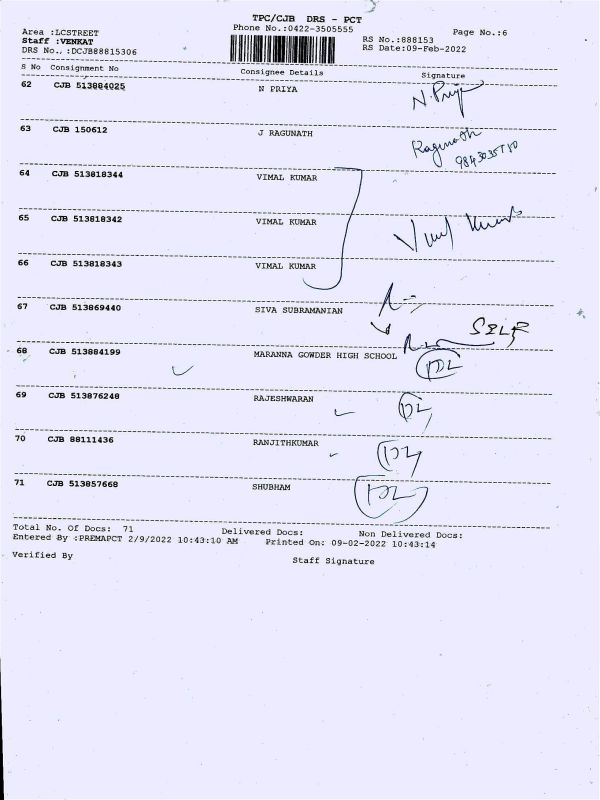 TPC/CJB DRS - PCT
Area :LCSTREET Phone No.:0422-3505555 Page No.:6
Staff :VENKAT RS No.:888153
DRS No.,:DCJB88815306 RS Date:09-Feb-2022
S No Consignment No Consignee Details Signature
62 CJB 513884025 N PRIYA N. Priya
63 CJB 150612 J RAGUNATH Ragunath
64 CJB 513818344 VIMAL KUMAR
65 CJB 513818342 VIMAL KUMAR Vimal Kumar
66 CJB 513818343 VIMAL KUMAR
67 CJB 513869440 SIVA SUBRAMANIAN
SELF
68 CJB 513884199 MARANNA GOWDER HIGH SCHOOL
69 CJB 513876248 RAJESHWARAN
70 CJB 88111436 RANJITHKUMAR
71 CJB 513857668 SHUBHAM
Total No. Of Docs: 71 Delivered Docs: Non Delivered Docs:
Entered By :PREMAPCT 2/9/2022 10:43:10 AM Printed On: 09-02-2022 10:43:14
Verified By Staff Signature